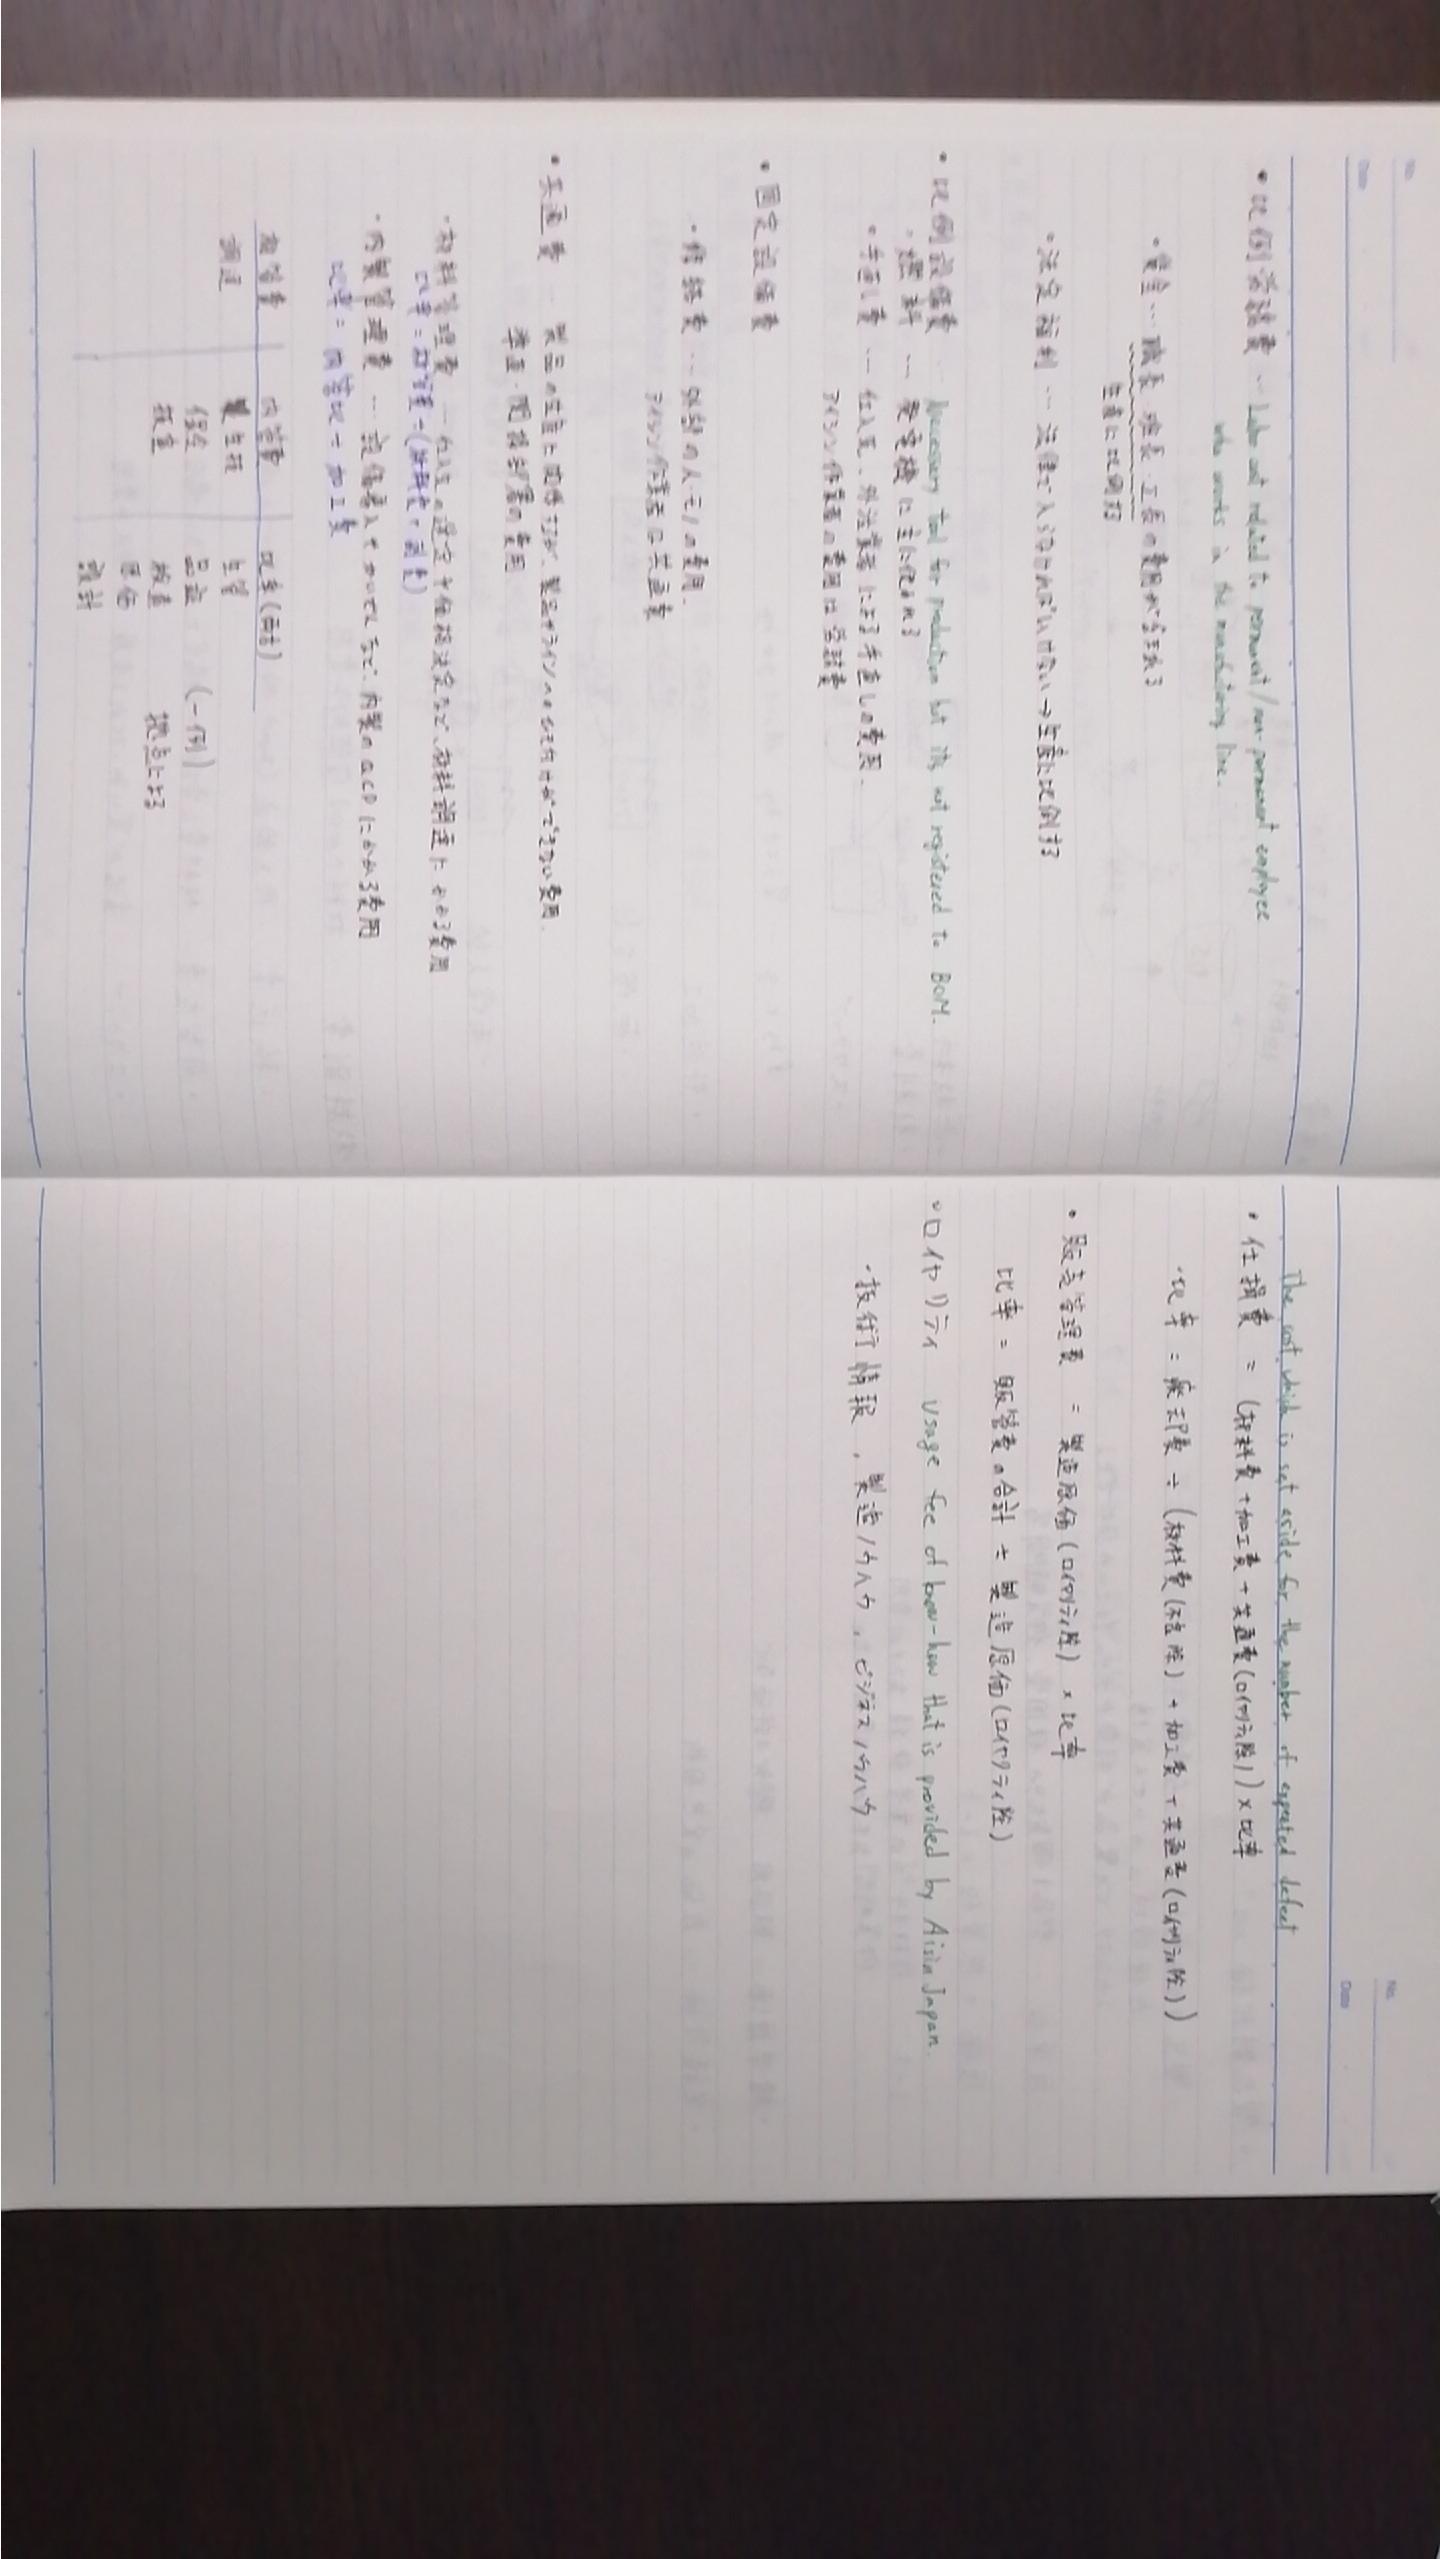 No.
Date
• 比例労務費 … Labor cost related to permanent/non-permanent employee
who works in the manufacturing line.
・賃金 … 職長・班長・工長の費用が含まれる
生産に比例する
・法定福利 … 法律で入らなければいけない → 生産に比例する
• 比例設備費 … Necessary tool for production but it's not registered to BOM.
・燃料 …
・手直し費 … 仕入先、外注業者による手直しの費用.
アイシン作業者の費用は労務費
• 固定設備費
・修繕費 … 外部の人・モノの費用.
アイシン作業者は共通費
• 共通費 … 製品の生産に関係するが、製品やラインへのひも付けができない費用.
準直・間接部署の費用
・材料管理費 … 仕入先の選定や価格決定など、材料調達にかかる費用
・内製管理費 … 設備導入やかいぜんなど、内製のQCDにかかる費用
比率 = 内管費 ÷ 加工費
材管費 内管費 比率(両方)
調達 生技 生管
保全 品証 (一例)
検査 拠点による
原価
設計
No.
Date
The cost which is set aside for the number of expected defect
• 仕損費 = (材料費+加工費+共通費(ロイヤリティ除))×比率
・比率 = 廃却費 ÷ (材料費(除) + 加工費 + 共通費(ロイヤリティ除))
• 販売管理費 = 製造原価(ロイヤリティ除) × 比率
比率 = 販管費の合計 ÷ 製造原価(ロイヤリティ除)
• ロイヤリティ usage fee of know-how that is provided by Aisin Japan.
・技術情報, 製造ノウハウ, ビジネスノウハウ